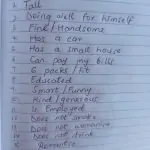 2 Tall
3 Doing well for himself
4 Fine / Handsome
5 Has a car
6 Has a small house
7 Can pay my bills
6 packs / fit
Educated
Smart / Funny
Kind / generous
Is Employed
Does not smoke
Does not womanise
Does not drink
Romantic